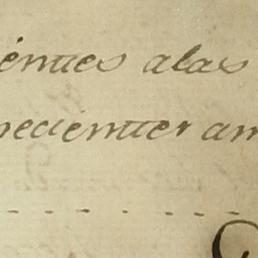 ientes alas
necientter am